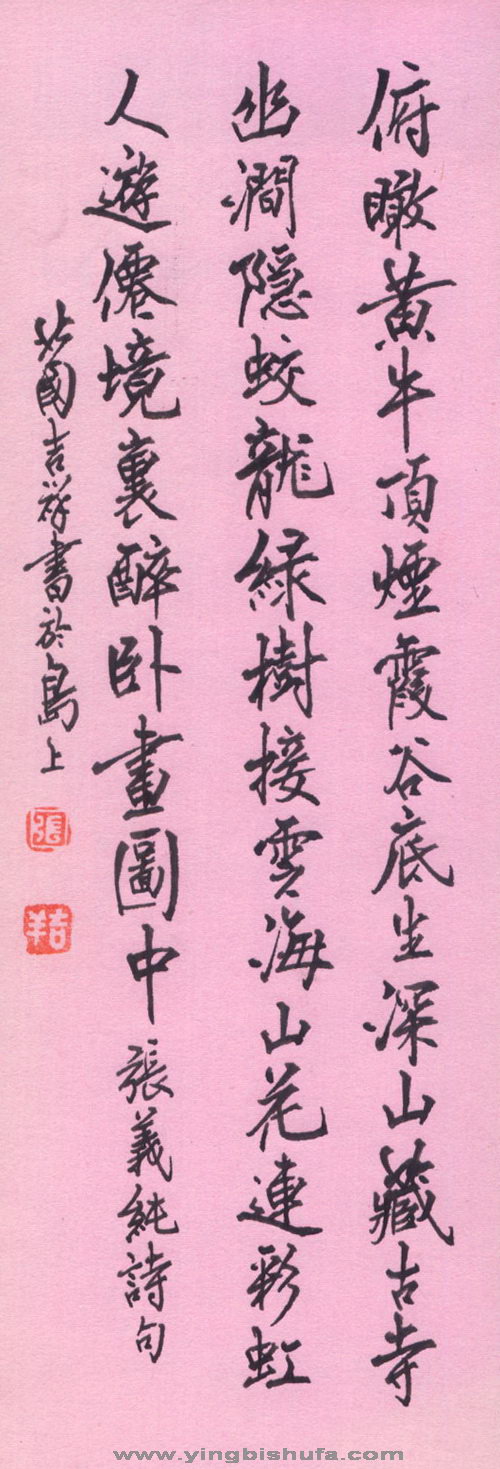 俯瞰黃牛頂煙霞谷底生深山藏古寺
幽澗隱蛟龍綠樹接雲海山花連彩虹
人遊僊境裏醉卧畫圖中張義純詩句
北國吉祥書於島上
張
吉羊
www.yingbishufa.com